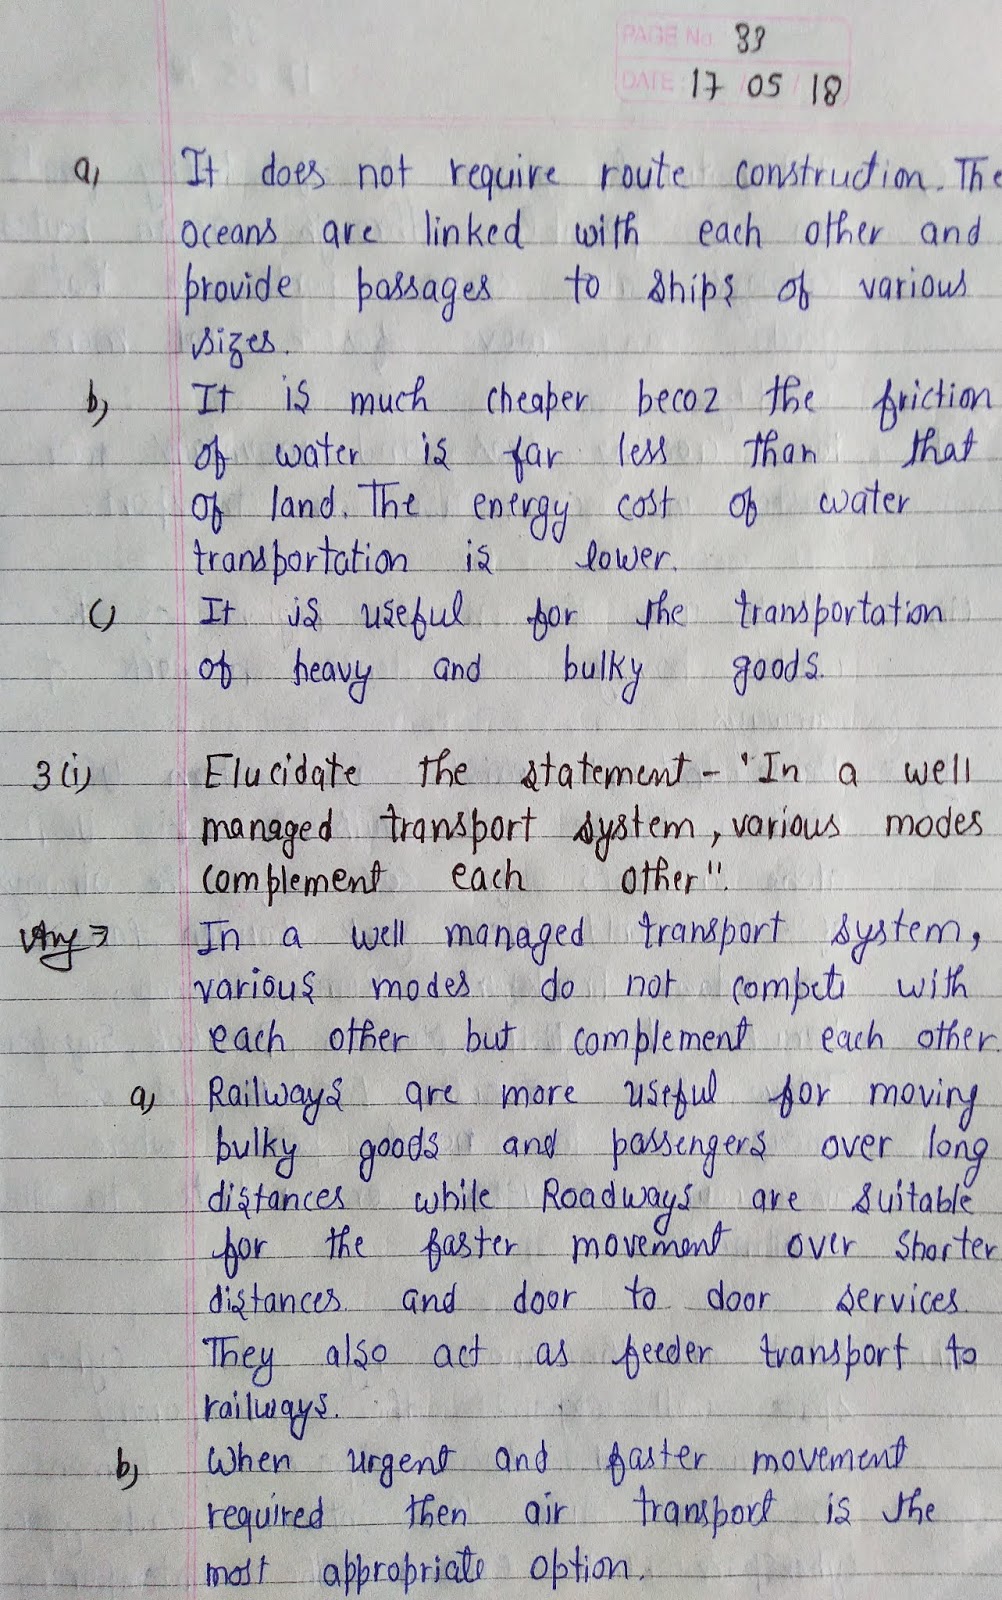 PAGE No. 33
DATE 17 / 05 / 18
a) It does not require route construction. The
oceans are linked with each other and
provide passages to ships of various
sizes.
b) It is much cheaper becoz the friction
of water is far less than that
of land. The energy cost of water
transportation is lower.
c) It is useful for the transportation
of heavy and bulky goods.
3(i) Elucidate the statement - "In a well
managed transport system, various modes
complement each other".
Ans⇒ In a well managed transport system,
various modes do not compete with
each other but complement each other.
a) Railways are more useful for moving
bulky goods and passengers over long
distances while Roadways are suitable
for the faster movement over shorter
distances and door to door services.
They also act as feeder transport to
railways.
b) When urgent and faster movement
required then air transport is the
most appropriate option.